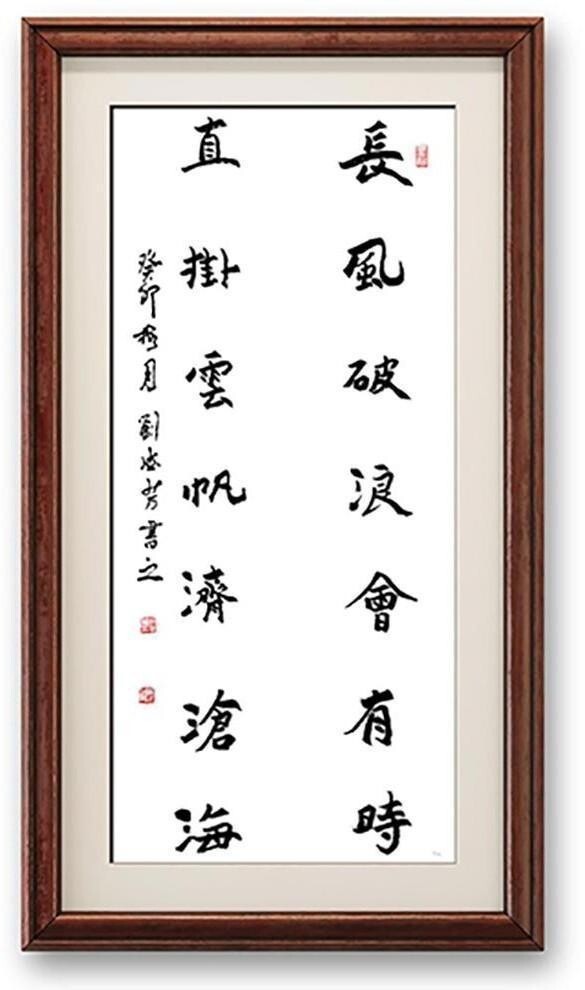 長風破浪會有時
直掛雲帆濟滄海
癸卯秋月劉啓芳書之